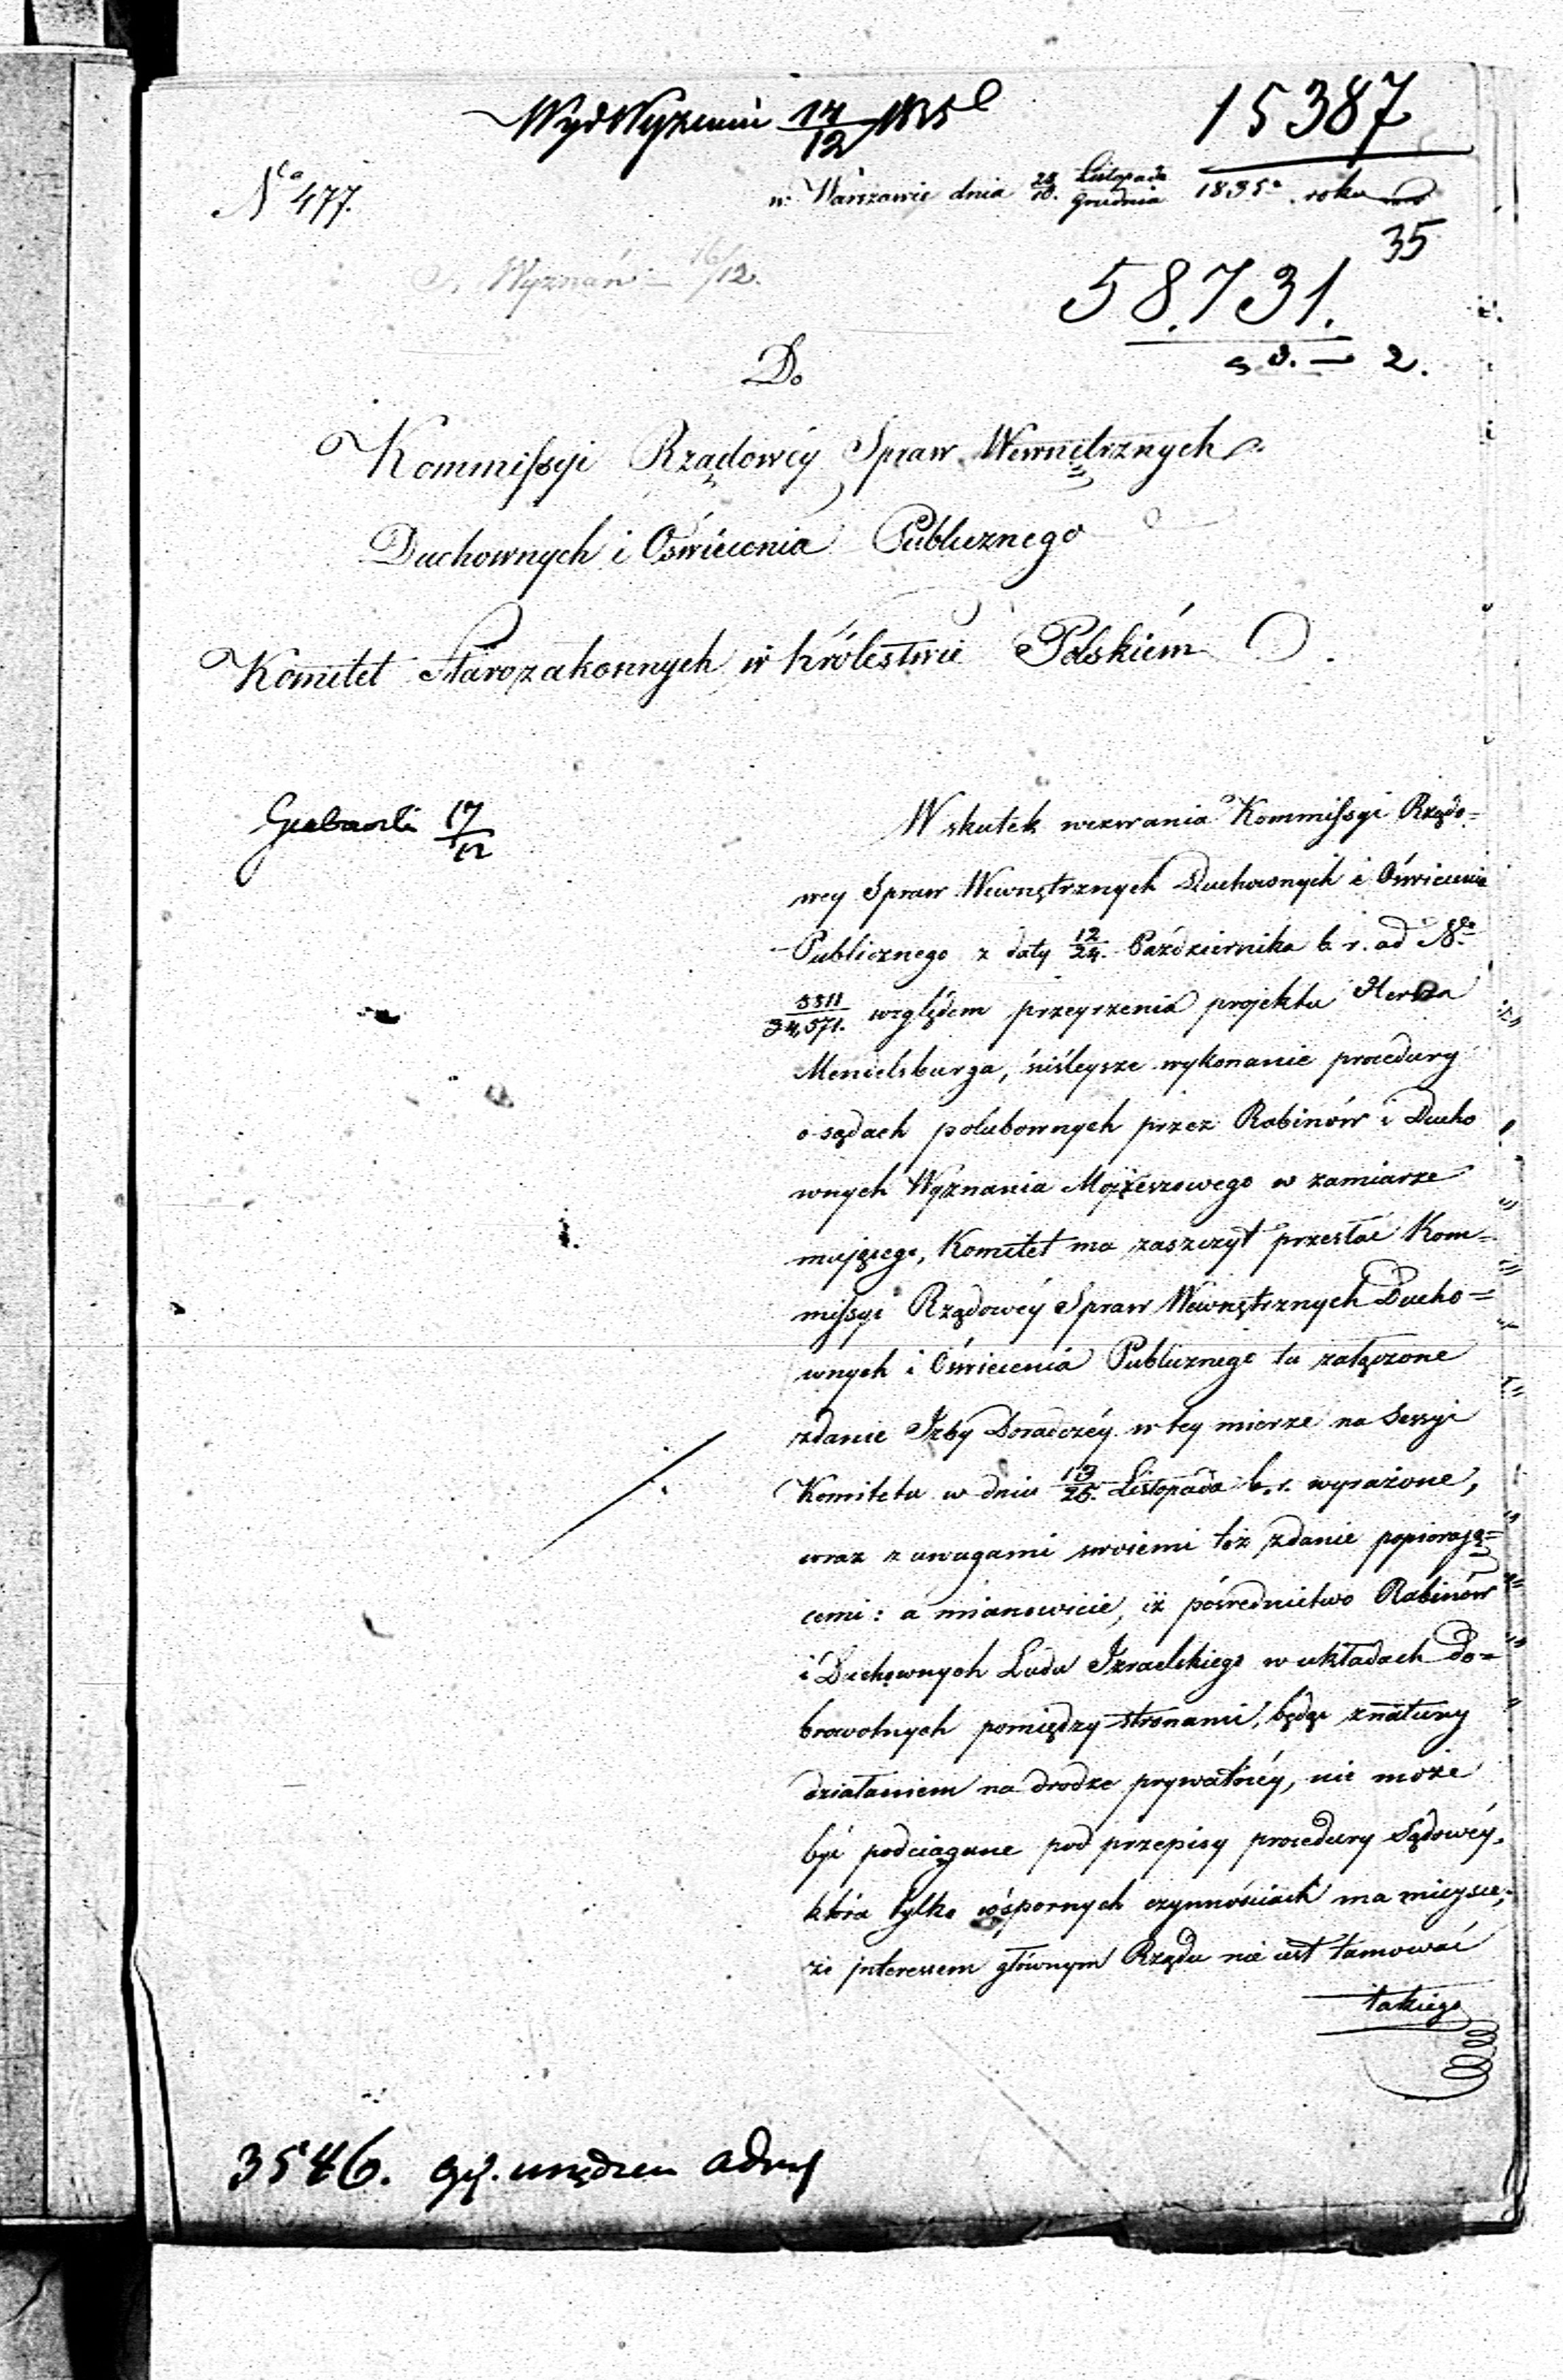 Wyd Wyznań 14/12 1835
15387
No 477.
w Warszawie dnia 28/10. Listopada/Grudnia 1835o. roku
35
Wyznań 16/12.
58.731.
2.
Do
Kommissyi Rządowéy Spraw Wewnętrznych
Duchownych i Oświecenia Publicznego
Komitet Starozakonnych w Królestwie Polskiém
17/12
W skutek wezwania Kommissyi Rządo=
wey Spraw Wewnętrznych Duchownych i Oświecenia
Publicznego z daty 12/24. Października b. r. ad No
5811/34,571. względem przeyrzenia projektu Hersza
Mendelsburga, ściśleysze wykonanie procedury
o sądach polubownych przez Rabinów i Ducho
wnych Wyznania Mojżeszowego w zamiarze
mającego, Komitet ma zaszczyt przesłać Kom=
missyi Rządowéy Spraw Wewnętrznych Ducho=
wnych i Oświecenia Publicznego tu załączone
zdanie Izby Doradczéy w tey mierze na Sessyi
Komitetu w dniu 13/25. Listopada b. r. wyrażone,
wraz z uwagami swoiemi toż zdanie popierają=
cemi: a mianowicie, iż pośrednictwo Rabinów
i Duchownych Ludu Izraelskiego w układach do=
browolnych pomiędzy stronami, będąc z natury
działaniem na drodze prywatnéy, nie może
być podciągane pod przepisy procedury Sądowéy,
która tylko w spornych czynnościach ma mieysce;
że interessem głównym Rządu nie iest tamować
takiego
3546.